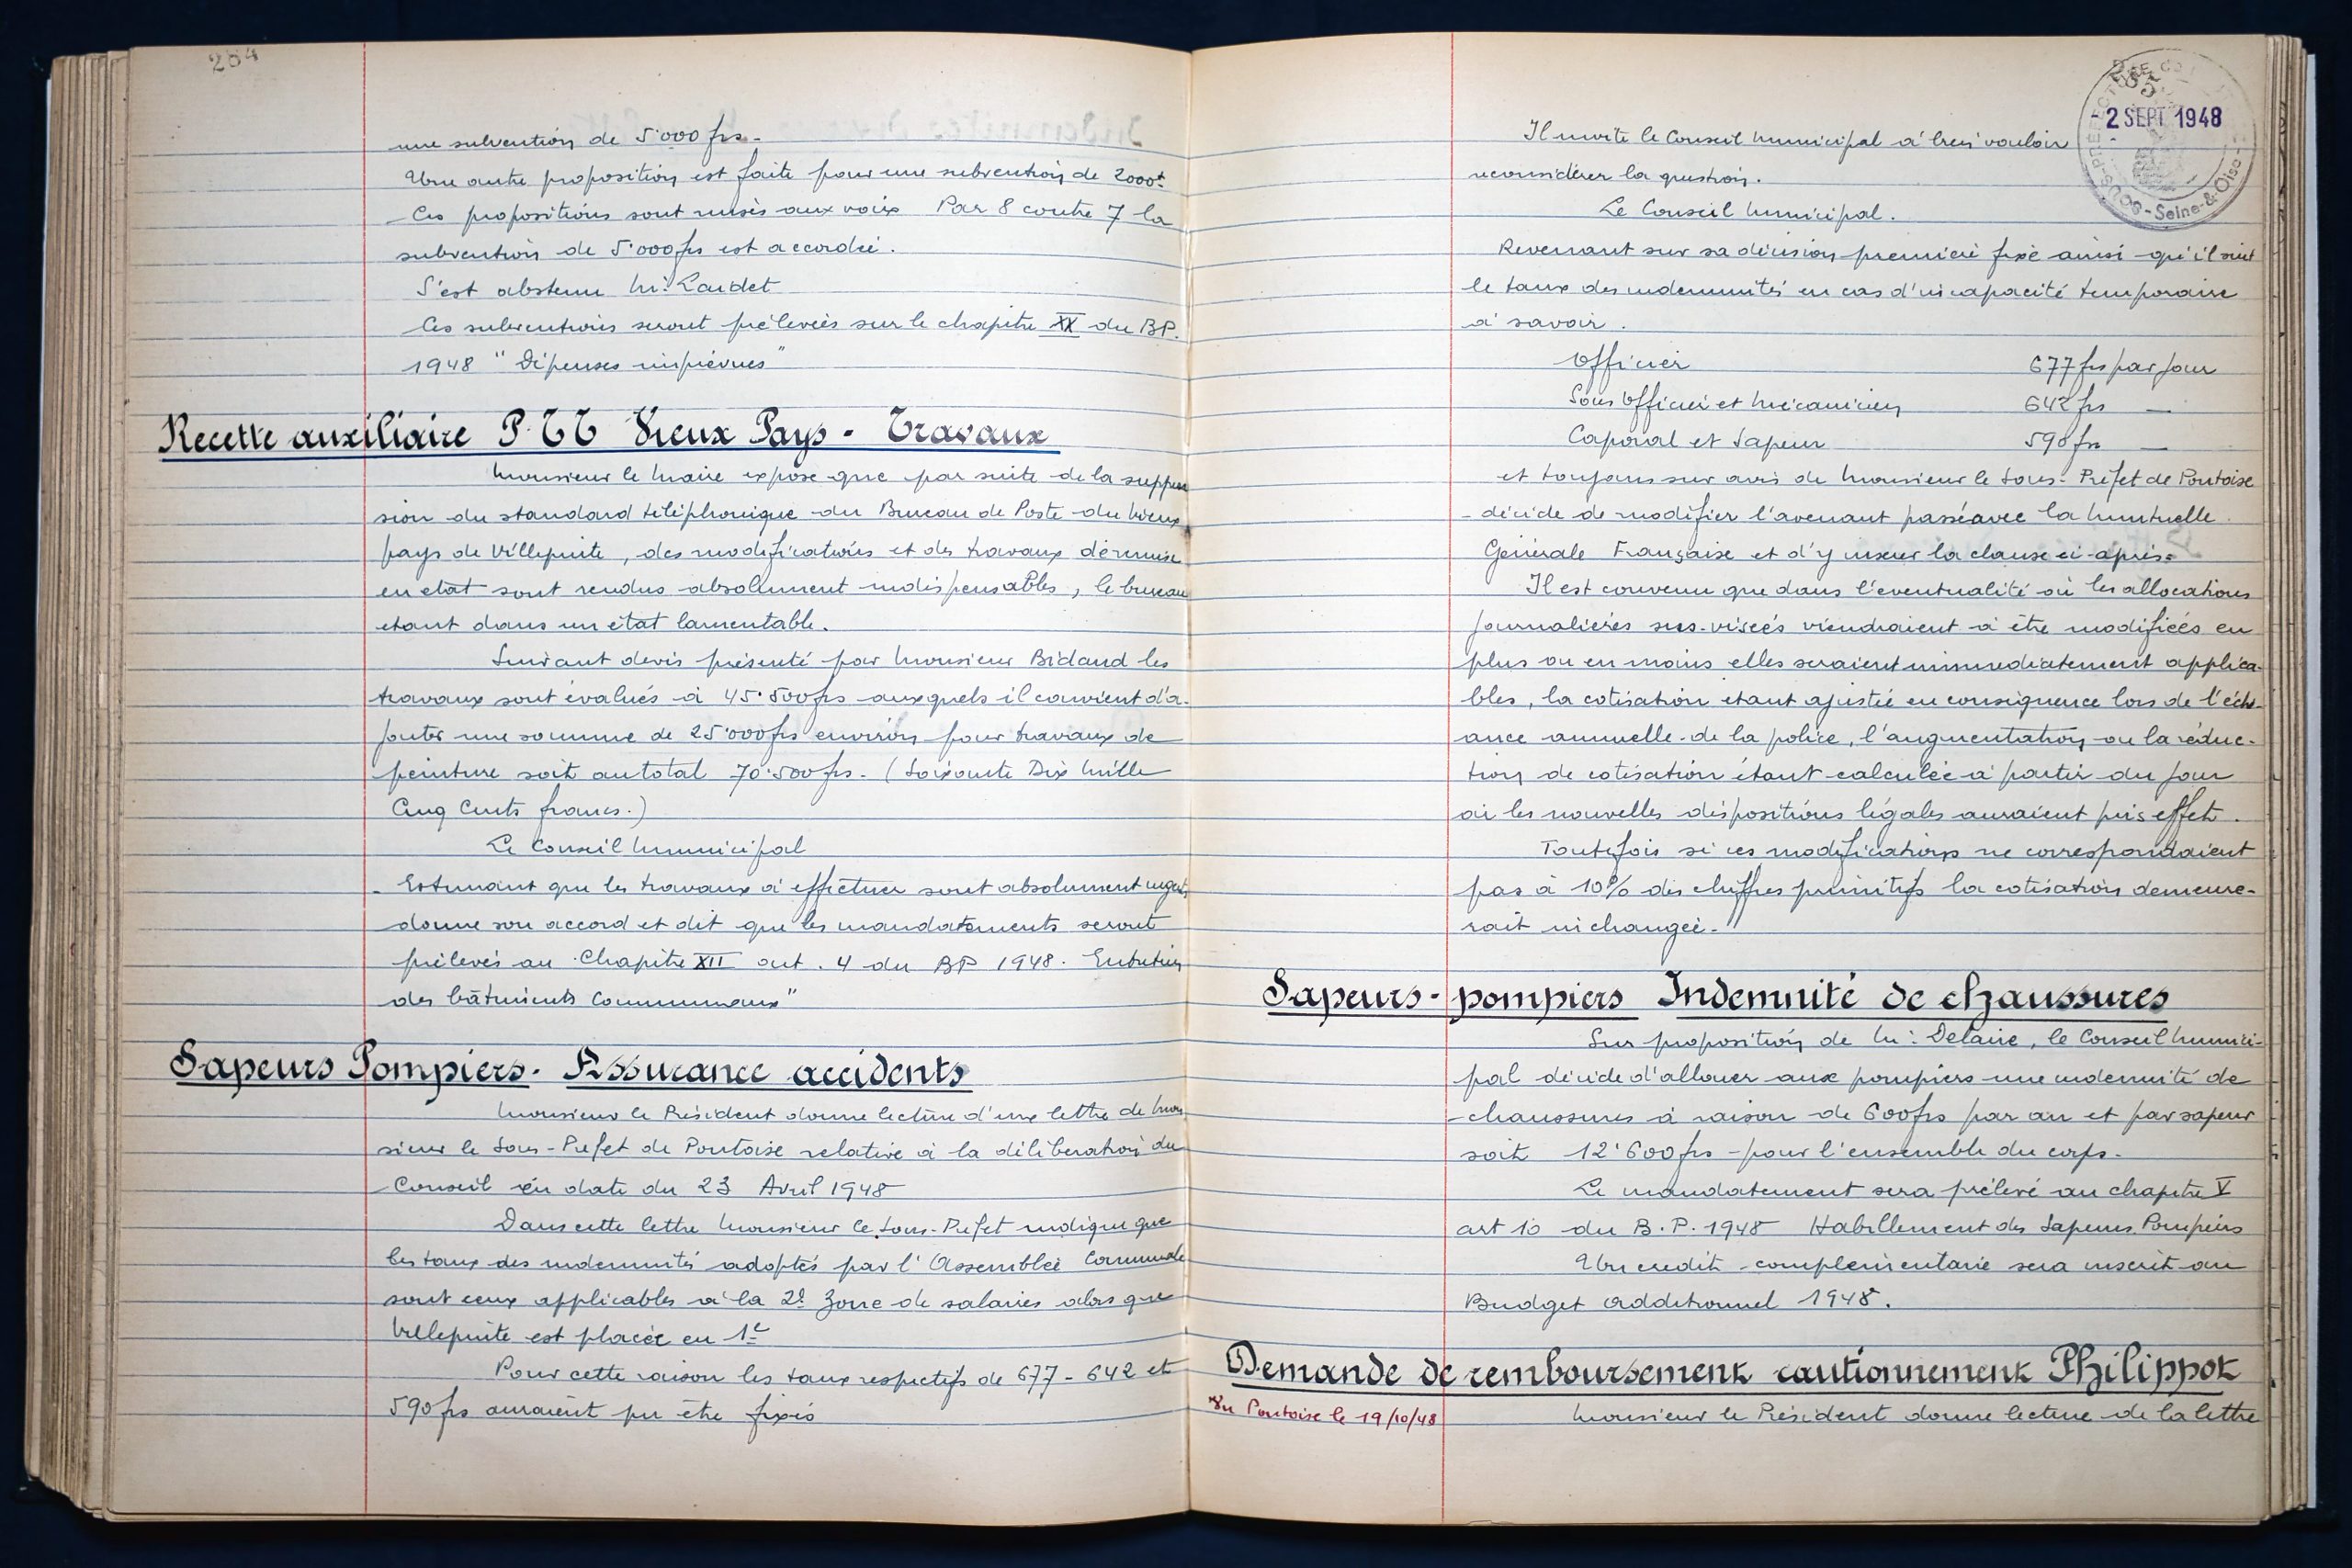 284
une subvention de 5'000 frs.
Une autre proposition est faite pour une subvention de 2000f
Ces propositions sont mises aux voix Par 8 contre 7 la
subvention de 5'000 frs est accordée.
S'est abstenu Mr. Laidet
Ces subventions seront prélevées sur le chapitre XX du BP.
1948 "Dépenses imprévues"
Recette auxiliaire P.TT Vieux Pays - Travaux
Monsieur le Maire expose que par suite de la suppres
sion du standard téléphonique du Bureau de Poste du Vieux
pays de Villepinte, des modifications et des travaux de remise
en état sont rendus absolument indispensables, le bureau
étant dans un état lamentable.
Suivant devis présenté par Monsieur Bidaud les
travaux sont évalués à 45'500 frs auxquels il convient d'a-
jouter une somme de 25'000 frs environ pour travaux de
peinture soit au total 70'500 frs. (Soixante Dix Mille
Cinq Cents francs.)
Le Conseil Municipal
Estimant que les travaux à effectuer sont absolument urgents
donne son accord et dit que les mandatements seront
prélevés au Chapitre XII art. 4 du BP 1948. Entretien
des bâtiments Communaux"
Sapeurs Pompiers. Assurance accidents
Monsieur le Président donne lecture d'une lettre de Mon
sieur le Sous-Préfet de Pontoise relative à la délibération du
Conseil en date du 23 Avril 1948
Dans cette lettre Monsieur le Sous-Préfet indique que
les taux des indemnités adoptés par l'Assemblée Communale
sont ceux applicables à la 2e Zone de salaires alors que
Villepinte est placée en 1e
Pour cette raison les taux respectifs de 677 - 642 et
590 frs auraient pu être fixés
285
SOUS-PRÉFECTURE
Seine-&-Oise
2 SEPT 1948
Il invite le Conseil Municipal à bien vouloir
reconsidérer la question.
Le Conseil Municipal.
Revenant sur sa décision première fixe ainsi qu'il suit
le taux des indemnités en cas d'incapacité temporaire
à savoir.
Officier 677 frs par jour
Sous Officier et Mécanicien 642 frs —
Caporal et Sapeur 590 frs —
et toujours sur avis de Monsieur le Sous-Préfet de Pontoise
décide de modifier l'avenant passé avec la Mutuelle
Générale Française et d'y insérer la clause ci-après:
Il est convenu que dans l'éventualité où les allocations
journalières sus-visées viendraient à être modifiées en
plus ou en moins elles seraient immédiatement applica-
bles, la cotisation étant ajustée en conséquence lors de l'éché-
ance annuelle de la police, l'augmentation ou la réduc-
tion de cotisation étant calculée à partir du jour
où les nouvelles dispositions légales auraient pris effet.
Toutefois si ces modifications ne correspondaient
pas à 10% des chiffres primitifs la cotisation demeure-
rait inchangée.
Sapeurs-pompiers Indemnité de chaussures
Sur proposition de Mr: Delaire, le Conseil Munici-
pal décide d'allouer aux pompiers une indemnité de
chaussures à raison de 600 frs par an et par sapeur
soit 12'600 frs - pour l'ensemble du corps.
Le mandatement sera prélevé au chapitre V
art 10 du B.P. 1948 Habillement des Sapeurs Pompiers
Un crédit complémentaire sera inscrit au
Budget additionnel 1948.
Demande de remboursement cautionnement Philippot
Vu Pontoise le 19/10/48
Monsieur le Président donne lecture de la lettre